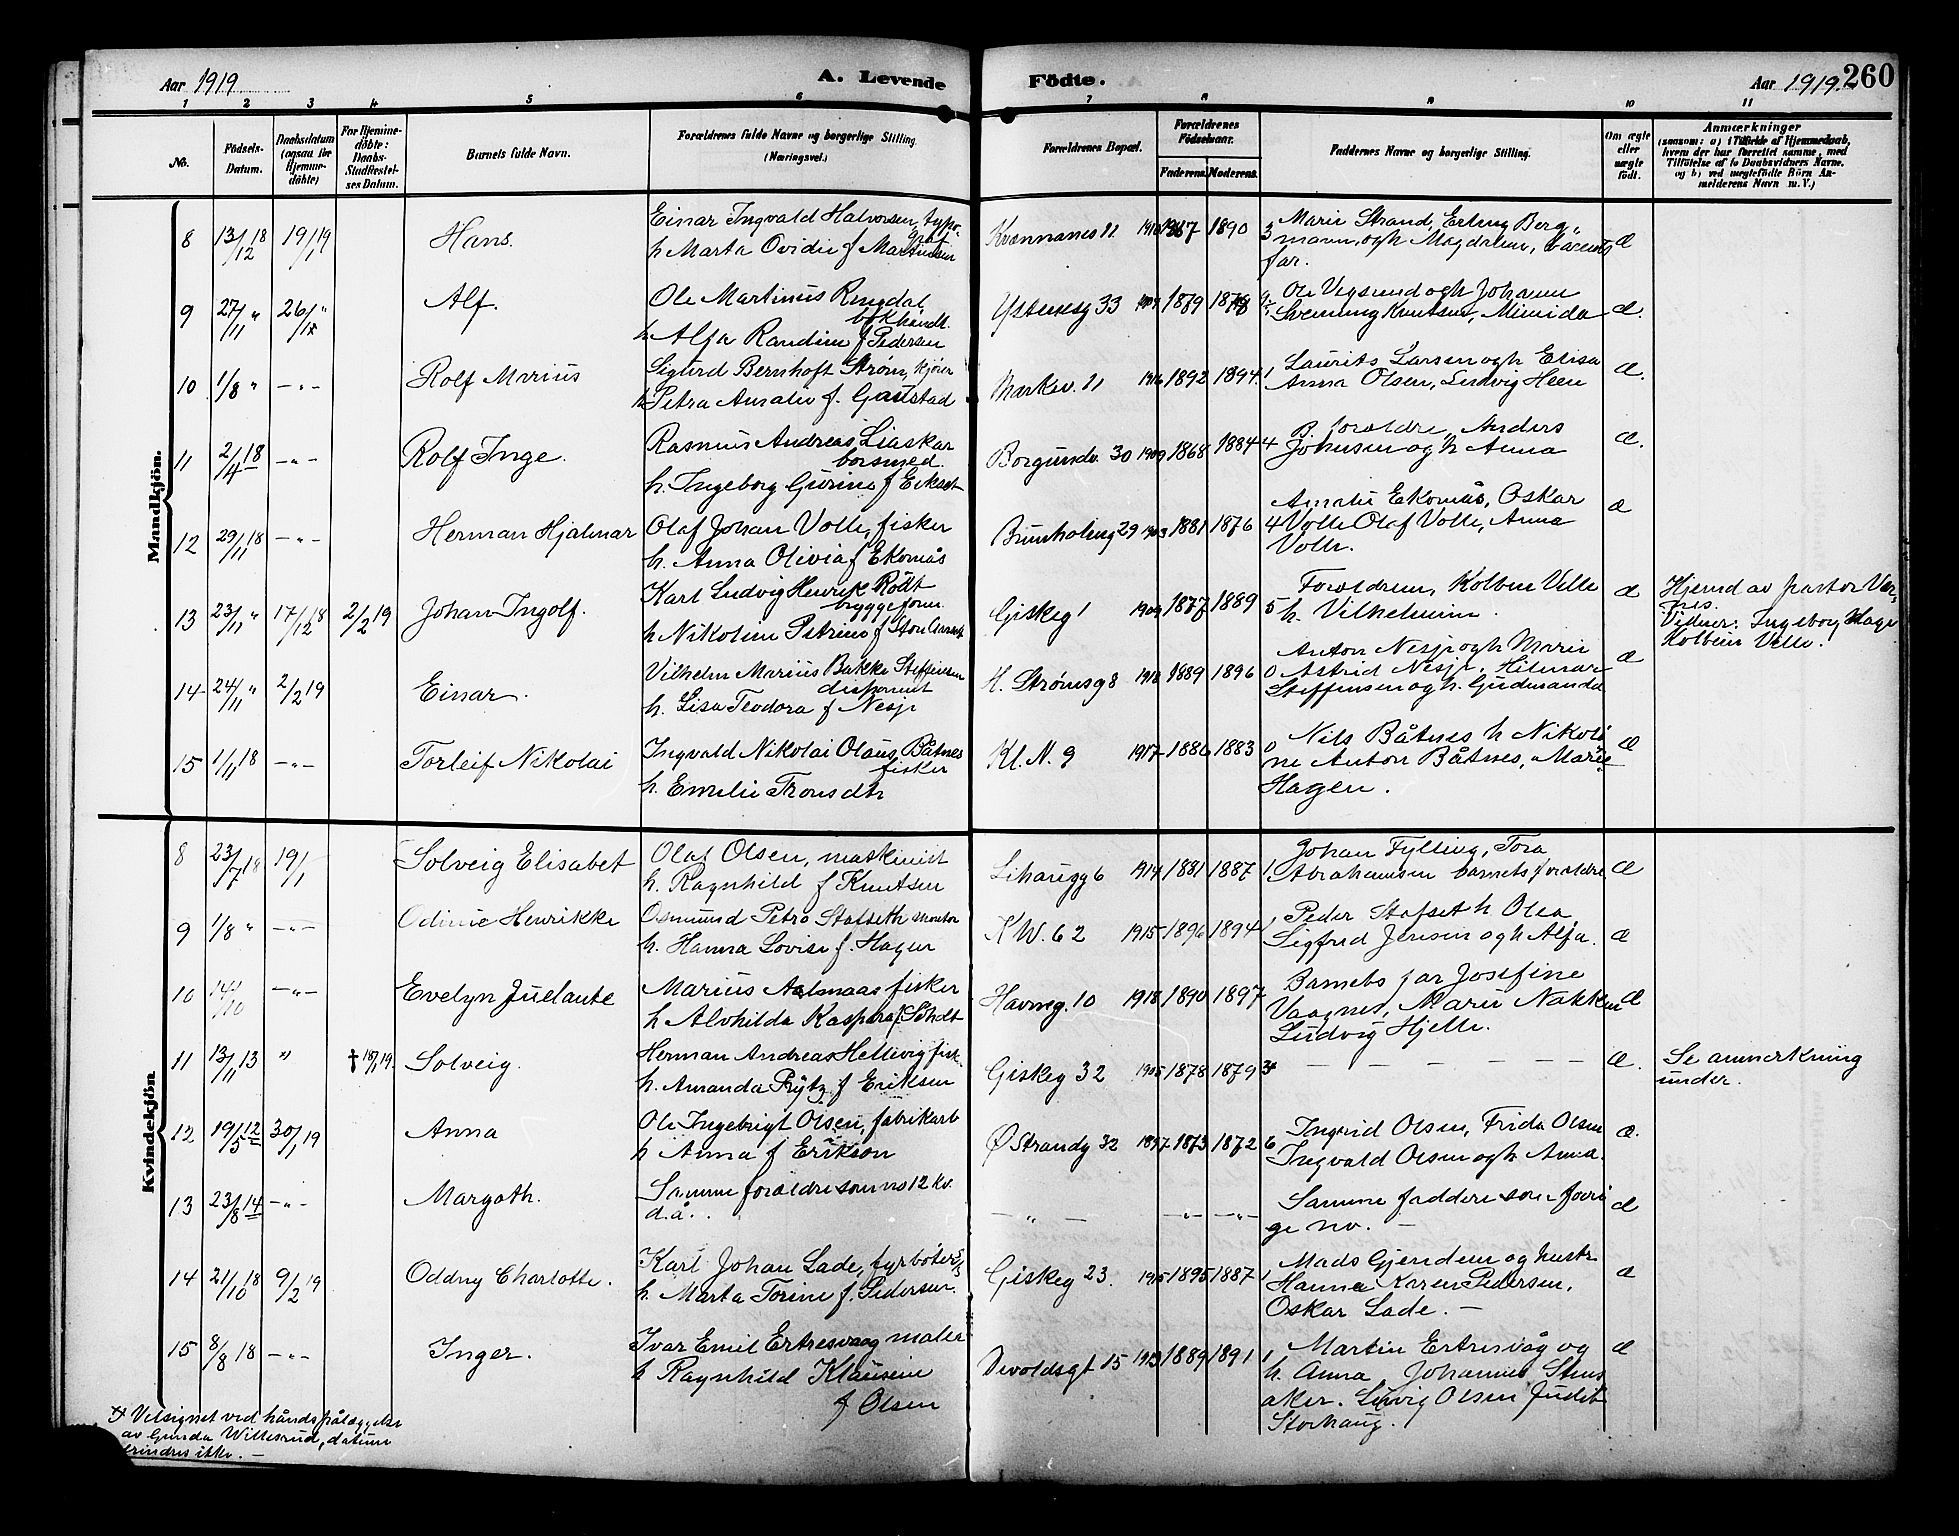 Aar 1919
A. Levende
Födte.
Aar 1919.
260
1 2 3 4 5 6 7 8 9 10 11
No.
Födsels-
Datum.
Daabsdatum
(ogsaa for
Hjemme-
döbte)
For Hjemme-
döbte:
Daabs-
Stadfæstel-
ses Datum.
Barnets fulde Navn.
Forældrenes fulde Navne og borgerlige Stilling
(Næringsvei.)
Forældrenes Bopæl.
Forældrenes
Födselsaar.
Faderens. Moderens.
Faddernes Navne og borgerlige Stilling.
Om ægte
eller
uægte
födt.
Anmærkninger
(saasom: a) i Tilfælde af Hjemmedaab,
hvem der har forrettet samme, med
Tilföielse af to Daabsvidners Navne,
og b) ved uægtefödte Börn An-
melderens Navn m. V.)
Mandkjön.
8 13/12 18 19/1 19 Hans.
Einar Ingvald Halvorsen, typo-
graf
h Marta Ovidie f Martinsen
Kvennanes 11 1890 3
Marie Strand, Erling Berg-
mann og h Magdalene, barnets
far.
æ
9 27/11 " 26/1 " Alf.
Ole Martinus Ringdal
bokhandl.
h Alfa Randine f Pedersen
33 1879
Ole Vigsund og h Johanne
Svenning Knutsen, Minida
æ.
10 1/8 " -"- Rolf Marius
Sigurd Bernhoft Strøm, kjører
h Petra Amalie f. Gaustad
Markev. 11 1916 1892 1894 1
Laurits Larsen og h Elisa
Anna Olsen, Ludvig Heen
æ.
11 2/4 18 -"- Rolf Inge.
Rasmus Andreas Liaskar
borsmed.
h. Ingeborg Gurine f Eikset
Borgundv. 30 1909 1868 1884 4
B. foreldre, Anders
Johnsen og h Anna
æ.
12 29/11 18 -"- Herman Hjalmar
Olaf Johan Volle, fisker
h. Anna Olivia f Ekornås
Brunholmg 29 1903 1881 1876 4
Amalie Ekornås, Oskar
Volle Olaf Volle, Anna
Volle.
æ
13 23/11 " 17/12 18 2/2 19 Johan Ingolf.
Karl Ludvig Henrik Rödt
byggeform.
h Nikoline Petrine f
Giskeg 1 1909 1877 1889 5
Foreldrene, Kolbein Velle
h. Vilhelmine.
æ
Hjemd av pastor Vær-
nes.
Vidner: Ingeborg Hage
Kolbein Velle.
14 24/11 " 2/2 19 Einar.
Vilhelm Marius Bakke Steffensen
disponent
h. Lisa Teodora f Nesje
K. Strømsg 8 1918 1889 1896 0
Anton Nesje og h Marie
Astrid Nesje, Hilmar
Steffensen og h. Gudmanda
æ
15 1/11 18 -"- Torleif Nikolai
Ingvald Nikolai Olaus Båtnes
fisker
h. Emelie Tronsdtr
Kl. N. 9 1917 1886 1883 0
Nils Båtnes h Nikoli-
ne Anton Båtnes, Marie
Hagen.
æ
Kvindekjön
8 23/7 18 19/1 Solveig Elisabet
Olaf Olsen, maskinist
h. Ragnhild f Knutsen
6 1914 1881 1887 1
Johan Fylling, Tora
Abrahamsen barnets foreldre
æ
9 1/8 " -"- Odinie Henrikke
Osmund Petro Stafseth montør
h. Hanna Lovise f. Hagen
K W. G 2 1915 1896 1894 1
Peder Stafset h Olea
Sigfred Jensen og h Alfa.
æ
10 14/10 -"- Evelyn Juelaute
Marius Aalmaas fisker
h Alvhilda Kaspara f.
Havneg. 10 1918 1890 1897
Barnets far Josefine
Vaagnes, Marie Nakken
Ludvig Hjelle.
æ
11 13/11 13 " † 18/1 19. Solveig.
Herman Andreas Hellevig fisk.
h. Amanda Rÿtz f Eriksen
Giskeg 32 1905 1878 1879
- - - - -
æ.
Se anmerkning
under.
12 19/5 12 30/1 19 Anna
Ole Ingebrigt Olsen, fabrikarb
h Anna f Erikson
Ø Strandg 32 1897 1873 1872 6
Ingrid Olsen, Frida Olsen
Ingvald Olsen og h Anna.
æ.
13 23/8 14 -"- Margoth.
Samme foreldre som no 12 kv.
d.å.
- " - -"- -"-
Samme faddere som forri
ge no. -
æ
14 21/10 18 9/2 19 Oddny Charlotte.
Karl Johan Lade, fyrböter
h. Marta Torine f. Pedersen.
Giskeg 23. 1915 1895 1887 1
Mads Gjendem og hustr
Hanna Karen Pedersen,
Oskar Lade. -
æ
15 8/8 18 -"- Inger.
Ivar Emil Ertresvaag maler
h Ragnhild Klausine
f Olsen
Devoldsgt 15 1913 1889 1891 1
Martin Ertresvåg og
h. Anna Johannes Stens
aker. Olsen Judit
Storhaug.
æ
Velsignet ved håndspålæggelse
av Gunda Willesrud, datum
erindres ikke. -